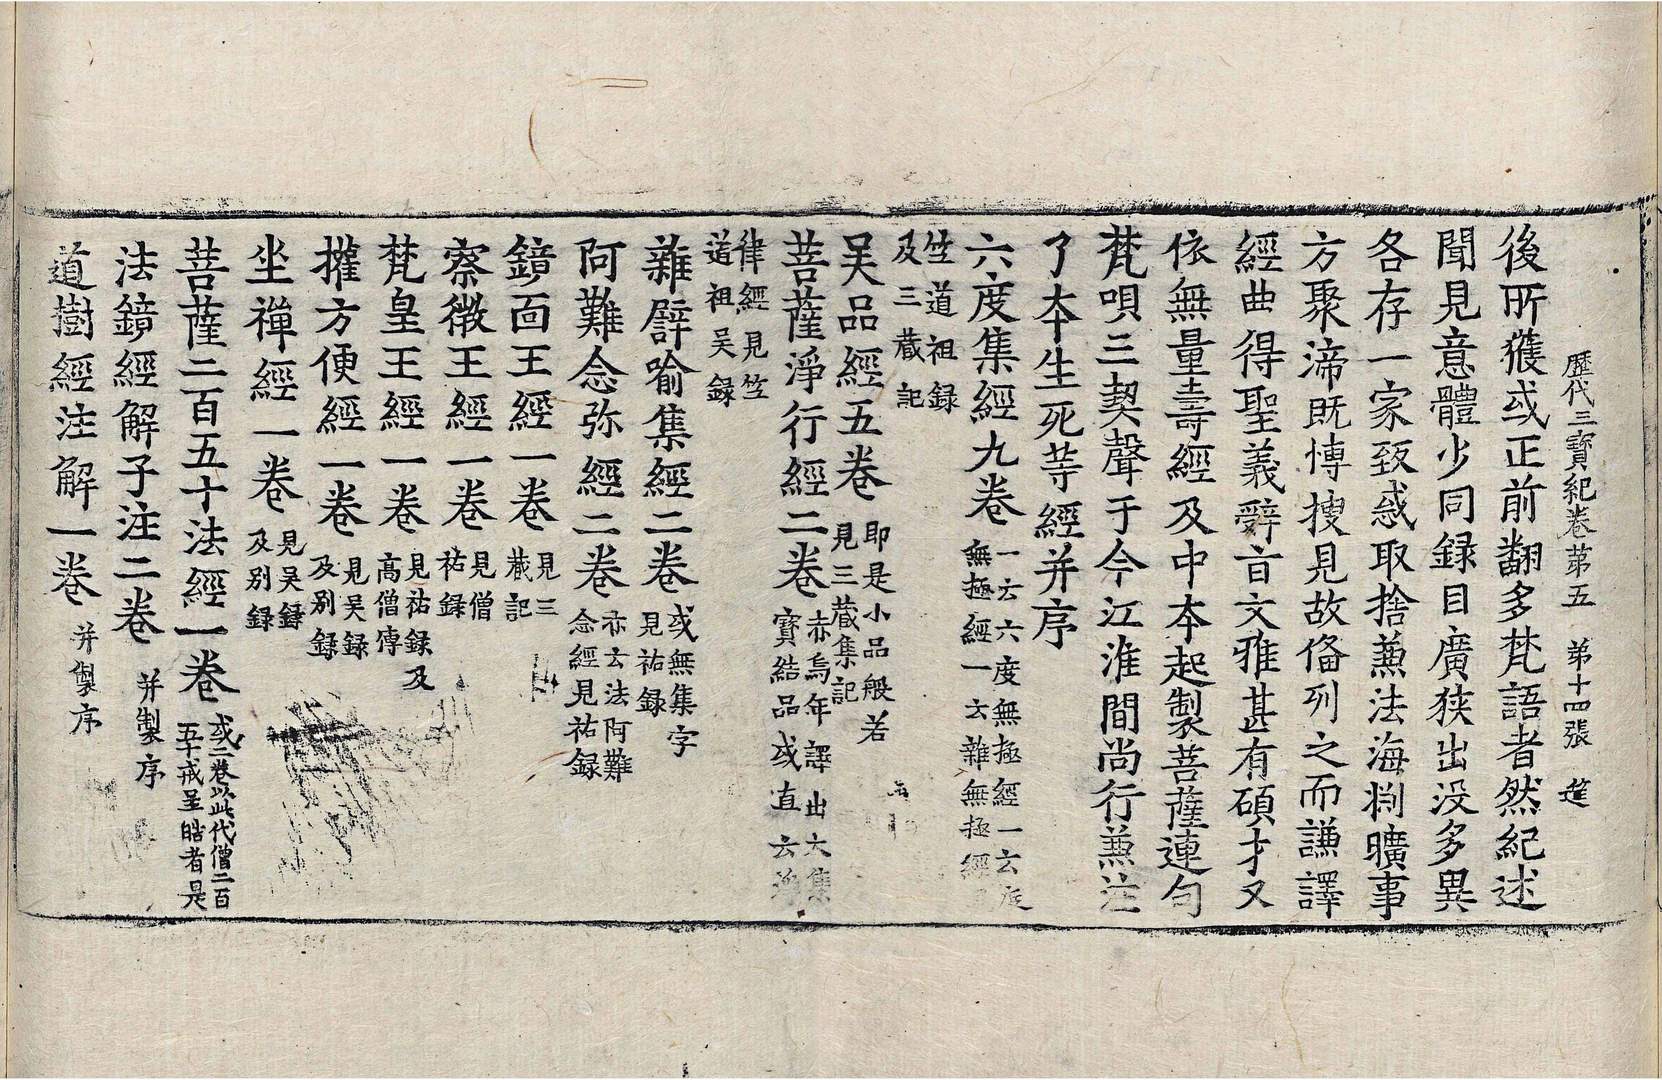 歷代三寶紀卷苐五　苐十四張　筵
後所獲或正前翻多梵語者然紀述
聞見意體少同録目廣狹出没多異
各存一家致惑取捨兼法海㓝曠事
方聚渧既愽搜見故俻列之而謙譯
經曲得聖義辝旨文雅甚有碩才又
依無量壽經及中本起製菩薩連句
梵唄三契聲于今江淮間尚行兼注
了本生死等經并序
六度集經九卷 一云六度無極經一云度
無極經一云雜無極經見
竺道祖録
及三蔵記
吴品經五卷 即是小品般若
見三蔵集記
菩薩淨行經二卷 赤烏年譯出大集
寳結品或直云淨
律經見竺
道祖吴録
雜譬喻集經二卷 或無集字
見祐録
阿難念弥經二卷 亦云法阿難
念經見祐録
鏡面王經一卷 見三
蔵記
察微王經一卷 見僧
祐録
梵皇王經一卷 見祐録及
高僧傳
權方便經一卷 見吴録
及别録
坐禪經一卷 見吴録
及别録
菩薩二百五十法經一卷 或二卷以此代僧二百
五十戒呈皓者是
法鏡經解子注二卷 并製序
道樹經注解一卷 并製序